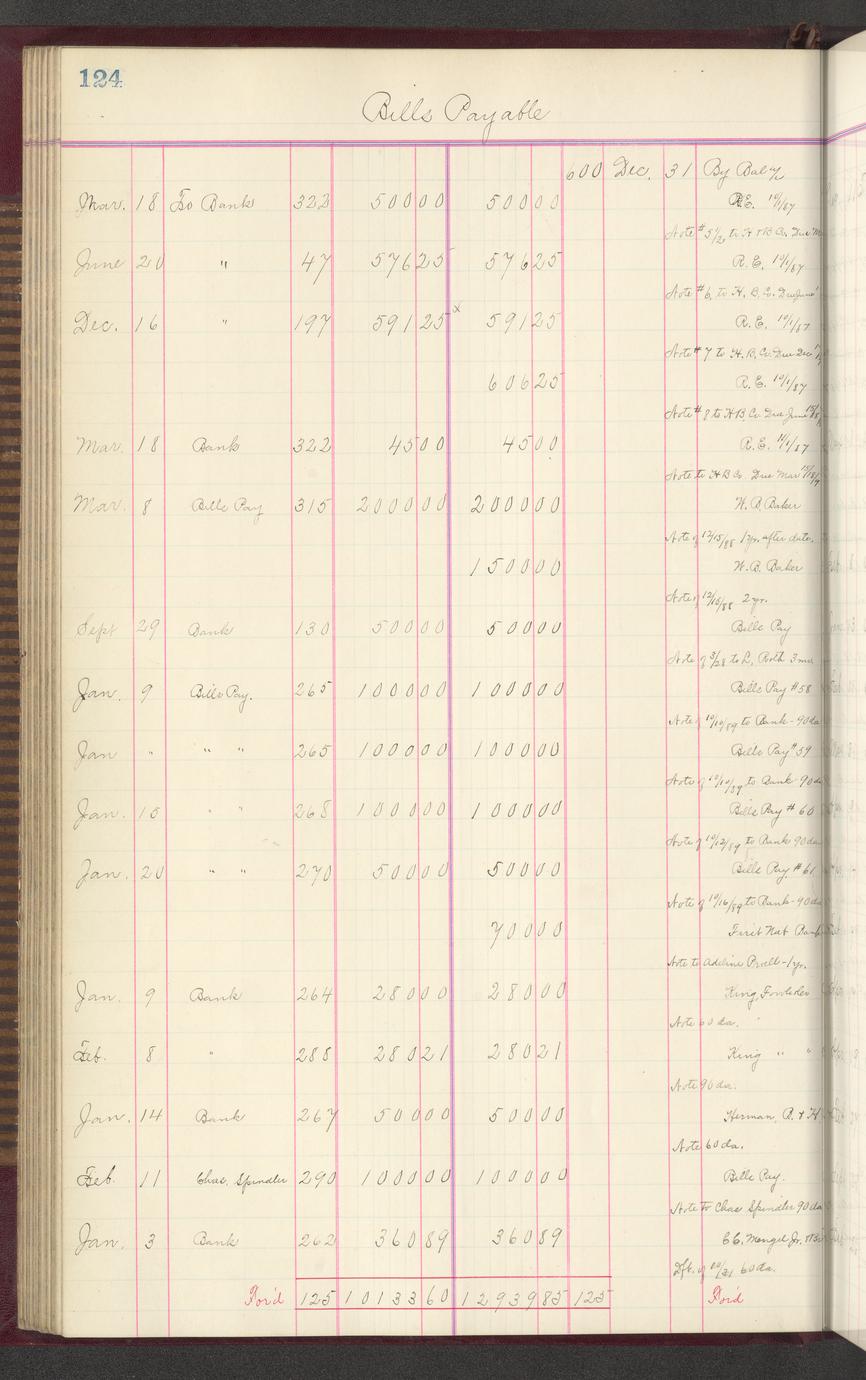 124
Bills Payable
600 Dec. 31 By Bal
Mar. 18 To Bank 322 500 00 500 00 R.E. 10/1/87
Note # 5 to H & B Co. Due
June 20 " 47 576 25 576 25 R.E. 10/1/87
Note # 6 to H. B. Co. Due June
Dec. 16 " 197 591 25 x 591 25 R.E. 10/1/87
Note # 7 to H. B. Co. Due Dec
606 25 R.E. 10/1/87
Note # 8 to H B Co. Due June
Mar. 18 Bank 322 45 00 45 00 R.E. 10/1/87
Note to H B Co. Due Mar
Mar. 8 Bills Pay 315 2000 00 2000 00 W. B. Baker
Note of 12/15/88 1 yr. after date.
1500 00 W. B. Baker
Note of 12/15/88 2 yr.
Sept 29 Bank 130 500 00 500 00 Bills Pay
Note of 3/28 to L. Roth 3 mos
Jan. 9 Bills Pay. 265 1000 00 1000 00 Bills Pay #58
Note of 10/10/89 to Bank - 90 da
Jan " " " 265 1000 00 1000 00 Bills Pay # 59
Note of 10/10/89 to Bank - 90 da
Jan. 15 " " 268 1000 00 1000 00 Bills Pay # 60
Note of 10/12/89 to Bank 90 da
Jan. 20 " " 270 500 00 500 00 Bills Pay. # 61
Note of 10/16/89 to Bank - 90 da
700 00 First Nat Bank
Note to Adeline - 1 yr.
Jan. 9 Bank 264 280 00 280 00 King
Note 60 da.
Feb. 8 " 288 280 21 280 21 King " "
Note 90 da.
Jan. 14 Bank 267 500 00 500 00 Herman, R. & H
Note 60 da.
Feb. 11 Chas. Spindler 290 1000 00 1000 00 Bills Pay.
Note to Chas Spindler 90 da
Jan. 3 Bank 262 360 89 360 89 C.C. Mengel Jr. & Bro
Dft. of 60 da.
For'd 125 10133 60 12939 85 125 For'd